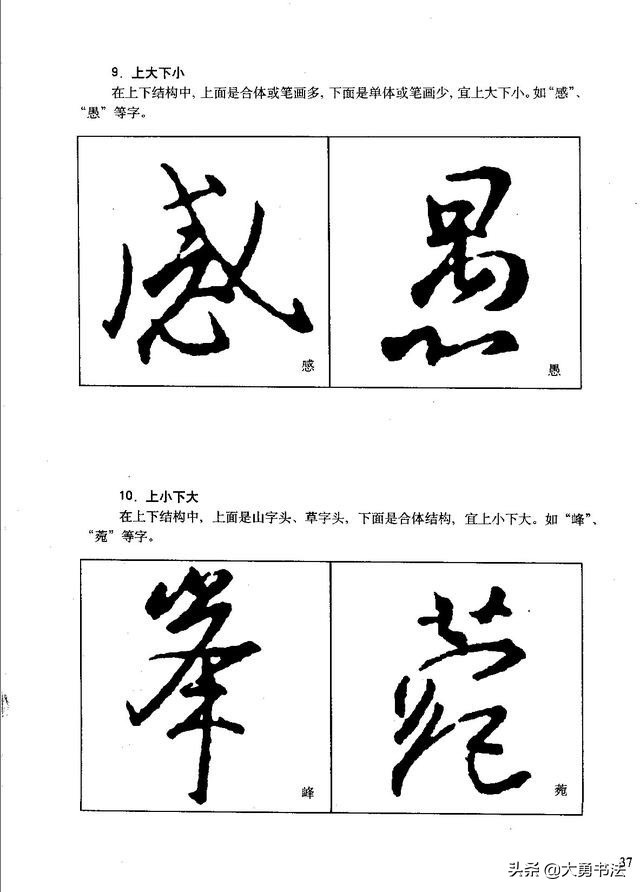 9．上大下小
在上下结构中，上面是合体或笔画多，下面是单体或笔画少，宜上大下小。如“感”、
“愚”等字。
感 愚
感
愚
10．上小下大
在上下结构中，上面是山字头、草字头，下面是合体结构，宜上小下大。如“峰”、
“菀”等字。
峰 菀
峰
菀
37
头条 @大勇书法